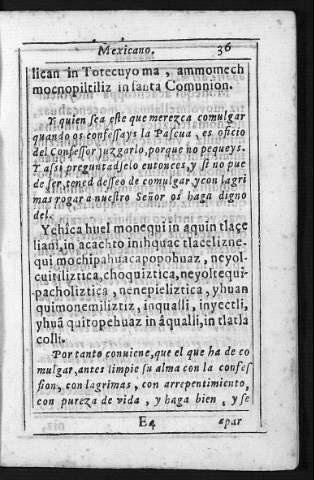 Mexicano. 36
lican in Totecuyo ma, ammomech
mocnopiltiliz in santa Comunion.
Y quien sea este que merezca comulgar
quando os confessays la Pascua, es oficio
del Confessor juzgarlo, porque no pequeys.
Y assi preguntadselo entonces, y si no pue
de ser, tened desseo de comulgar, y con lagri
mas rogar a nuestro Señor os haga digno
del.
Yehica huel monequi in aquin tlaçe
liani, in acachto inihquac tlacelizne-
qui mochipahuacapopohuaz, neyol-
cuitiliztica, choquiztica, neyoltequi-
pacholiztica, nenepieliztica, yhuan
quimonemiliztiz, inqualli, inyectli,
yhuã quitopehuaz in âqualli, in tlatla
colli.
Por tanto conviene, que el que ha de co
mulgar, antes limpie su alma con la confes
sion, con lagrimas, con arrepentimiento,
con pureza de vida, y haga bien, y se
E4 apar